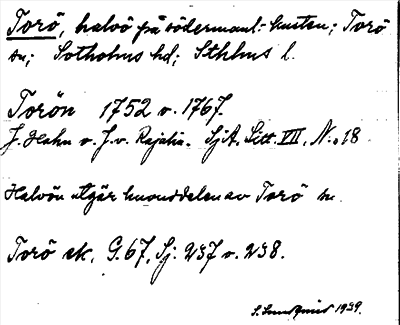 Torö, halvö på södermanl. kusten; Torö
sn; Sotholms hd; Sthlms l.
Torön 1752 o. 1767.
J. Hahn o. J. v. Rajalin. SjA, Litt. VII, N:o 18
Halvön utgör huvuddelen av Torö sn.
Torö sk. G. 67, Sj: 237 o. 238.
1939.